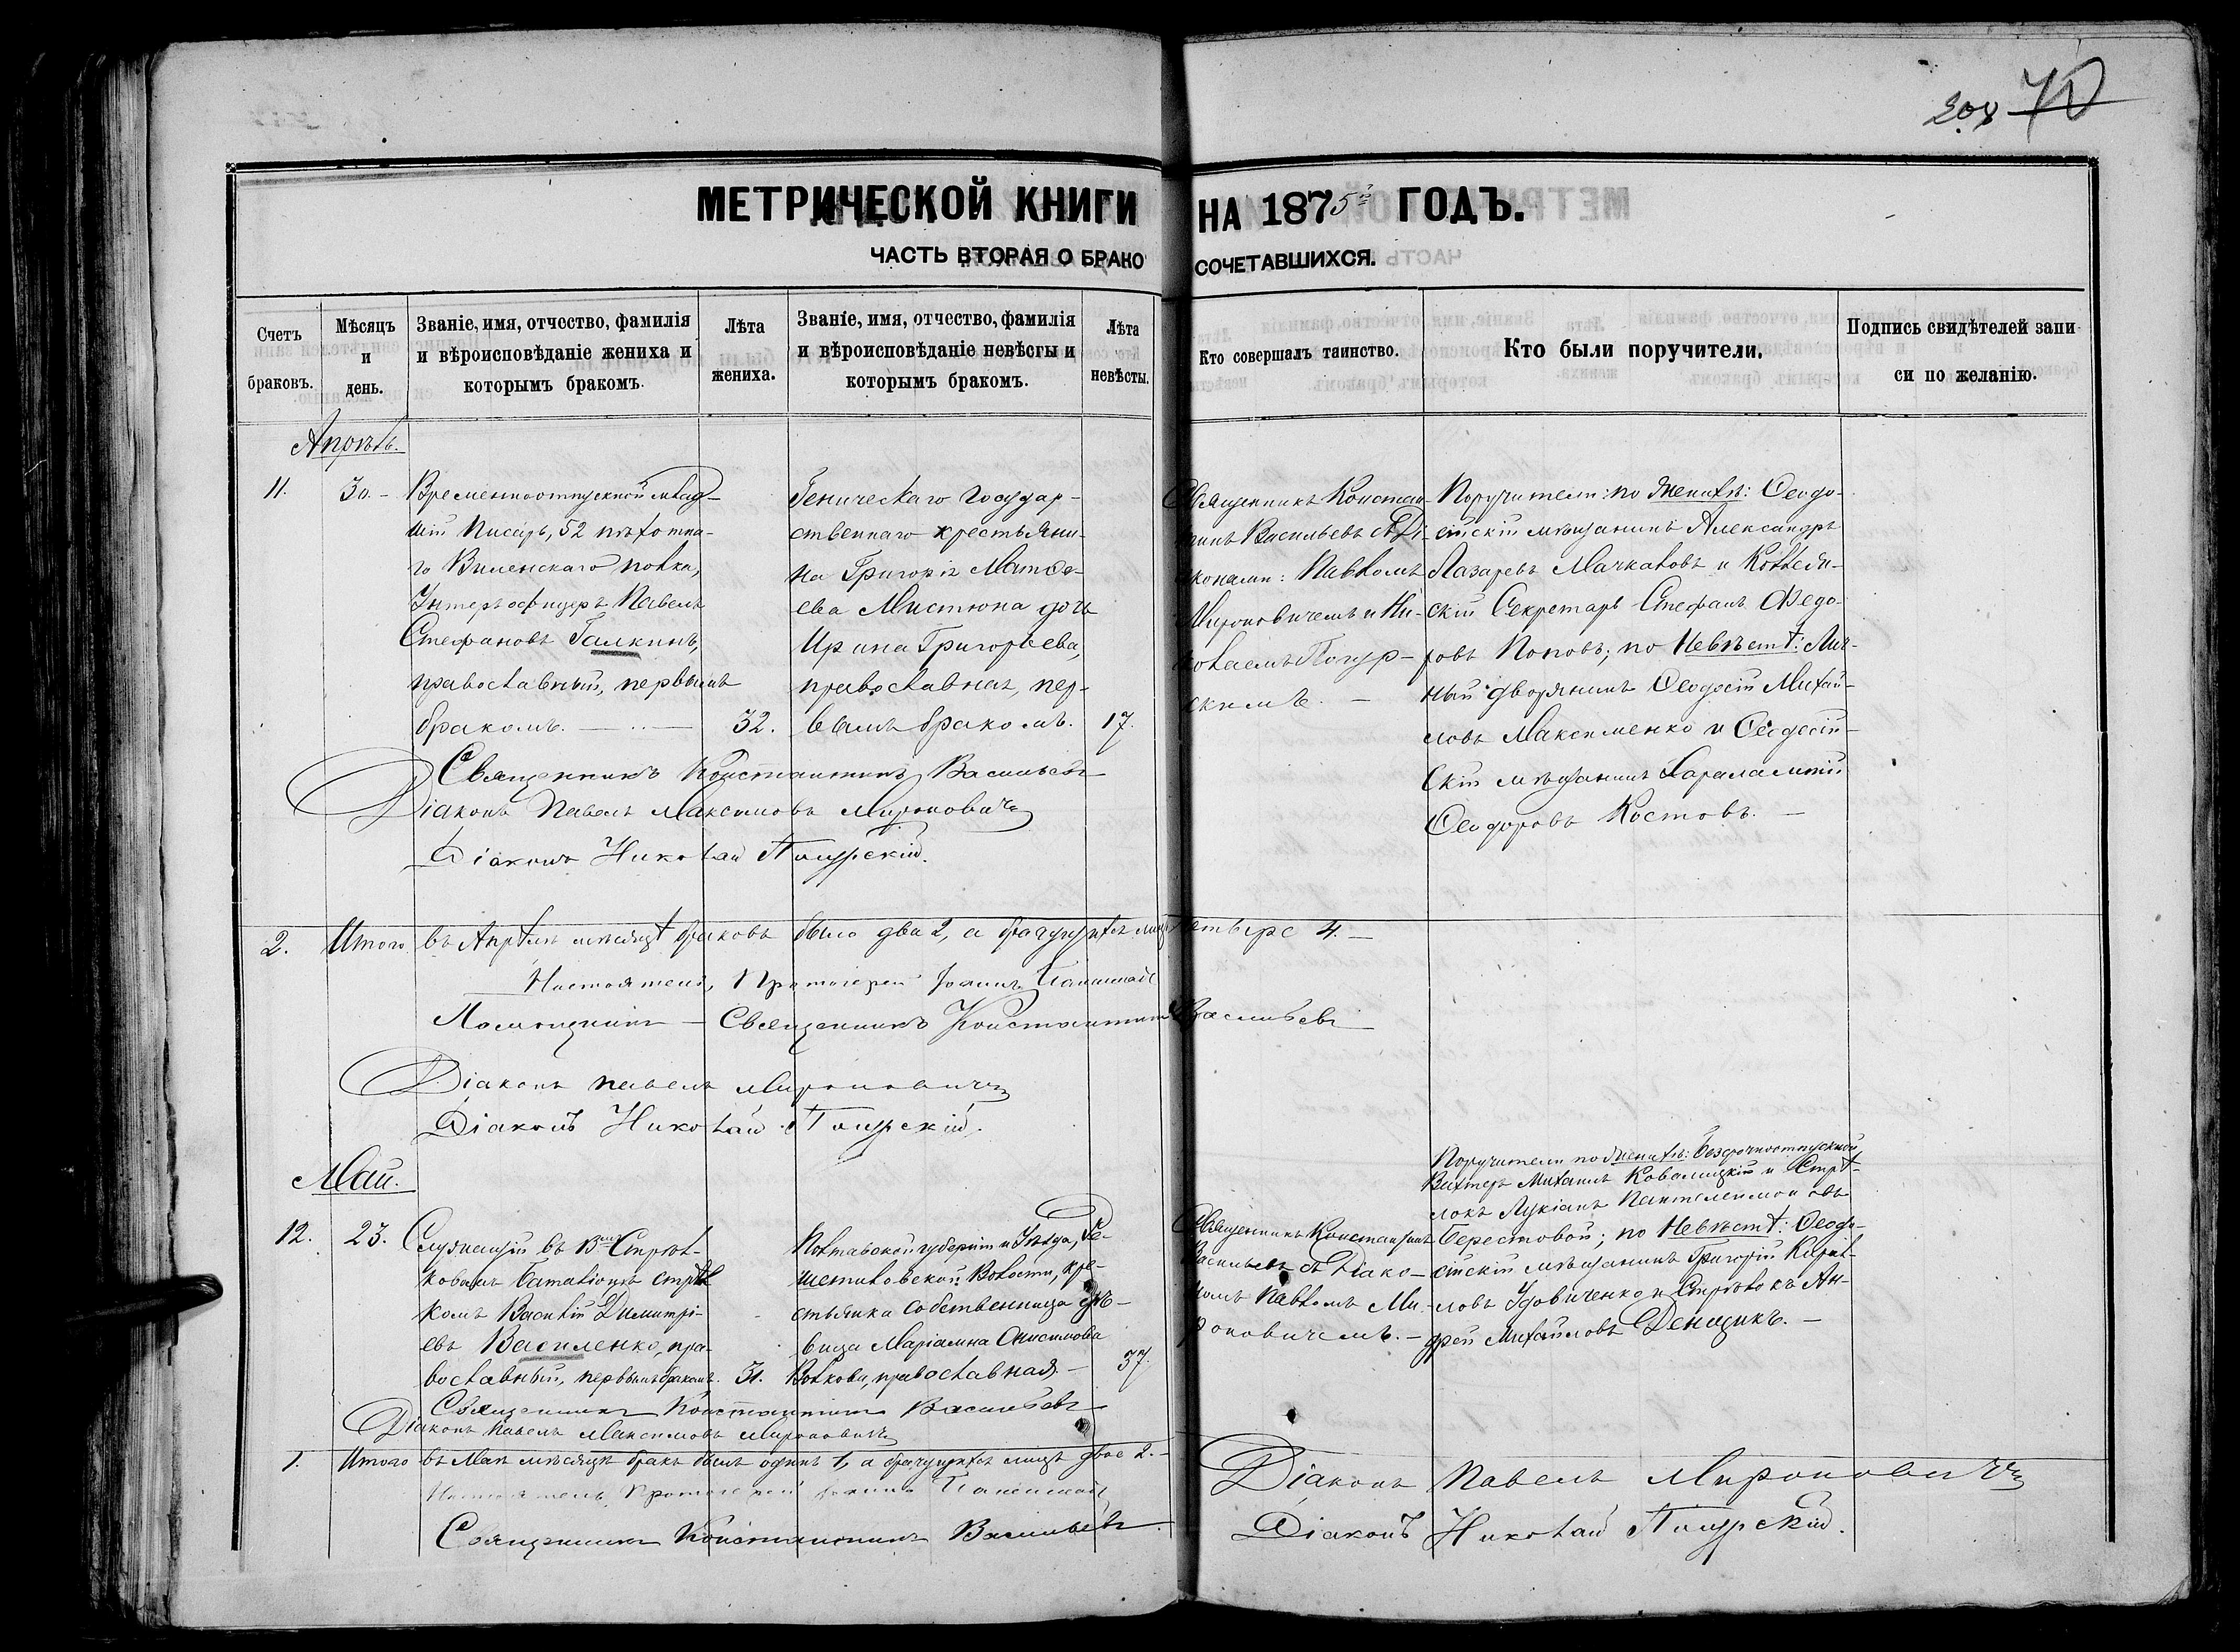 208 70
МЕТРИЧЕСКОЙ КНИГИ НА 1875й ГОДЪ.
ЧАСТЬ ВТОРАЯ О БРАКОСОЧЕТАВШИХСЯ.
Счетъ браковъ.
Мѣсяцъ и день.
Званіе, имя, отчество, фамилія
и вѣроисповѣданіе жениха и
которымъ бракомъ.
Лѣта
жениха.
Званіе, имя, отчество, фамилія
и вѣроисповѣданіе невѣсты и
которымъ бракомъ.
Лѣта
невѣсты.
Кто совершалъ таинство.
Кто были поручители.
Подпись свидѣтелей запи
си по желанію.
Апрѣль.
11.
30.
Временноотпускной млад-
шій Писарь, 52 пѣхотна-
го Виленскаго полка,
Унтеръ офицеръ Павелъ
Стефановъ Галкинъ,
православный, первымъ
бракомъ.
32.
Геническаго Государ-
ственнаго крестьяни-
на Григорія Матѳе-
ева Мистюка дочь
Ирина Григорьева,
православная, пер-
вымъ бракомъ.
17.
Священникъ Констан-
тинъ Васильевъ съ Ді-
аконами: Павломъ
Мироновичемъ и Ни-
колаемъ
скимъ.
Поручители: по Женихѣ: Ѳеодо-
сійскій мѣщанинъ Александръ
Лазаревъ Мачкаловъ и Коллеж-
скій Секретарь Стефанъ Федо-
ровъ Поповъ; по Невѣстѣ: Лич-
ный дворянинъ Ѳеодосій Михай-
ловъ Максименко и Ѳеодосій-
скій мѣщанинъ Харалампій
Ѳеодоровъ Костовъ.
Священникъ Константинъ Васильевъ
Діаконъ Павелъ Максимовъ Мироновичъ
Діаконъ Николай
2. Итого въ Апрѣлѣ мѣсяцѣ браковъ было два 2, а брачущихся лицъ четыре 4.
Настоятель, Протоіерей Іоаннъ
Помощникъ Священникъ Константинъ Васильевъ
Діаконъ Павелъ Мироновичъ
Діаконъ Николай
Май.
12.
23.
Служащій въ Стрѣл-
ковомъ Баталіонѣ стрѣл
комъ Василій Димитрі-
евъ Василенко, пра-
вославный, первымъ бракомъ.
31.
Полтавской губерніи и Уѣзда, Ре-
шетиловской Волости, кре-
стьянка собственница дѣ-
вица Маріамна Онисимова
Волкова, православная.
37.
Священникъ Константинъ
Васильевъ съ Діако-
номъ Павломъ Ми-
роновичемъ.
Поручители по Женихѣ: безсрочноотпускной
Вахтеръ Михаилъ Ковалицкій и Стрѣ-
локъ Лукіанъ Пантелеймоновъ
Берестовой; по Невѣстѣ: Ѳеодо-
сійскій мѣщанинъ Григорій Кирил-
ловъ Удовиченко и Стрѣлокъ Ан-
дрей Михайловъ Денщикъ.
Священникъ Константинъ Васильевъ
Діаконъ Павелъ Максимовъ Мироновичъ
1. Итого въ Маѣ мѣсяцѣ бракъ былъ одинъ 1, а брачущихся лицъ двое 2.
Настоятель, Протоіерей Іоаннъ
Священникъ Константинъ Васильевъ.
Діаконъ Павелъ Мироновичъ
Діаконъ Николай